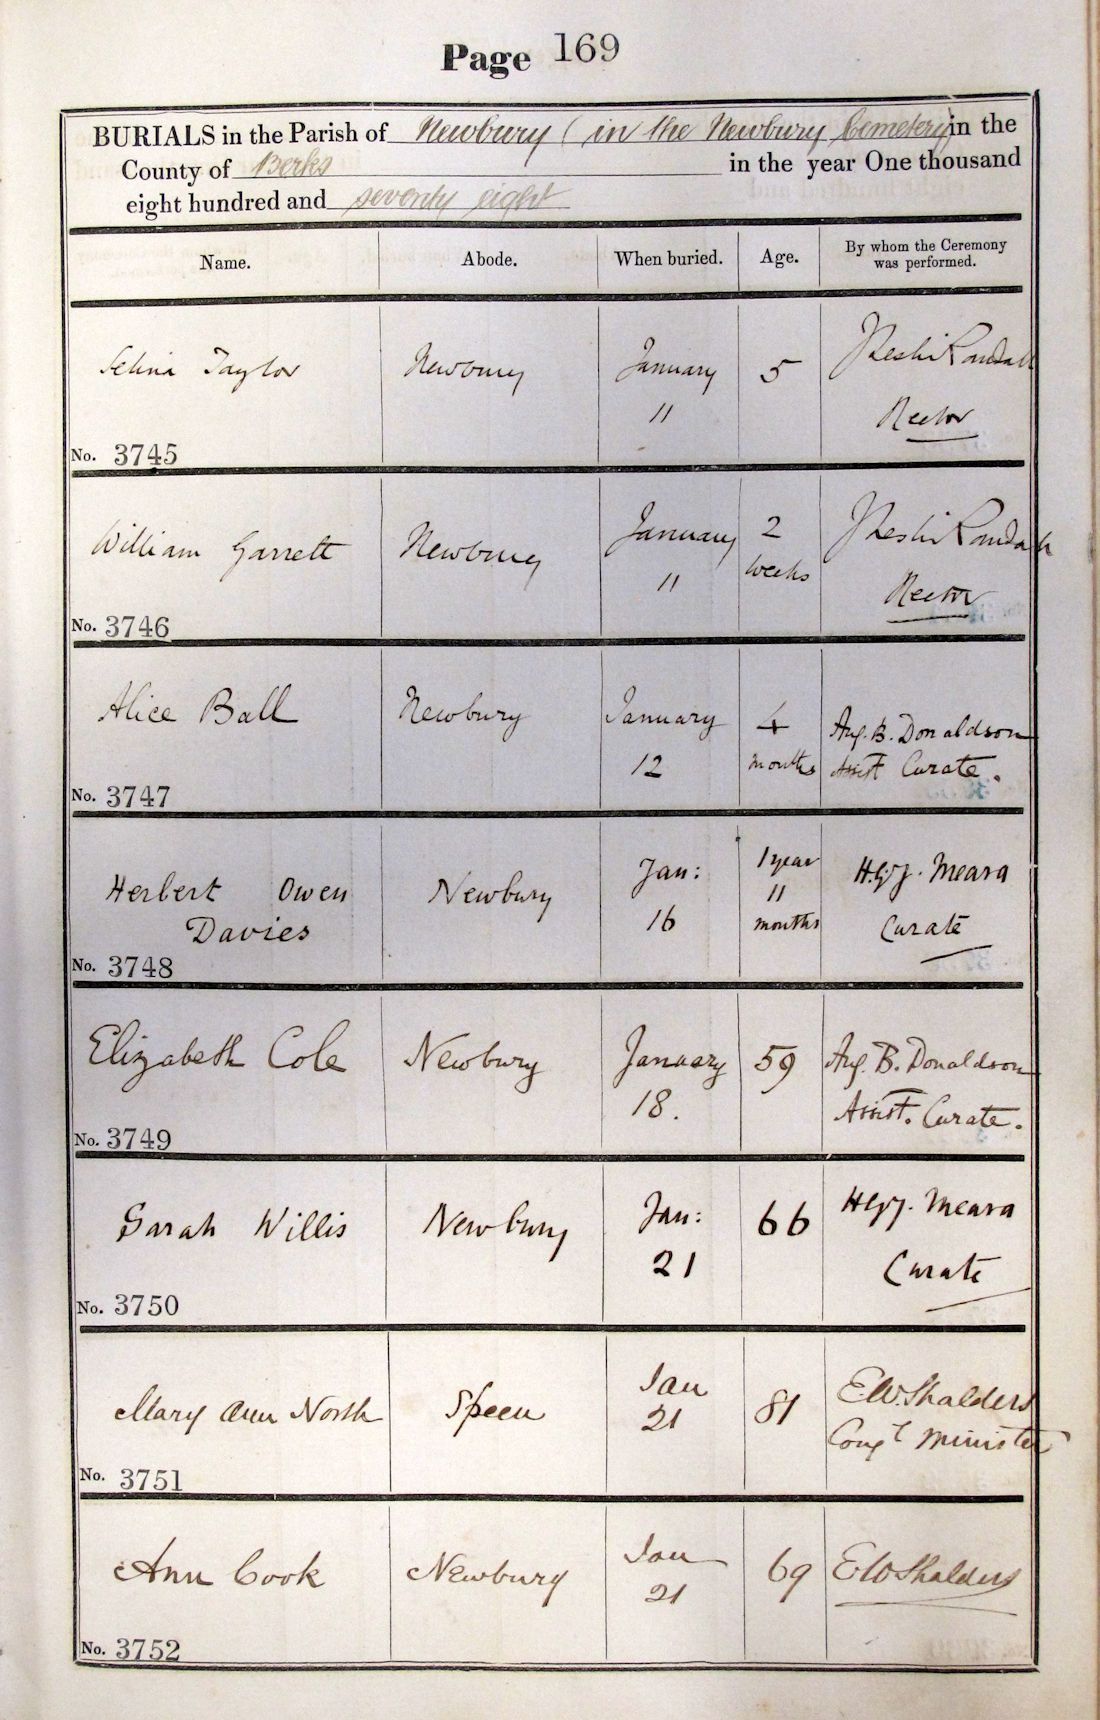 Page 169
BURIALS in the Parish of Newbury (in the Newbury Cemetery) in the
County of Berks in the year One thousand
eight hundred and seventy eight
Name. Abode. When buried. Age. By whom the Ceremony
was performed.
Selina Taylor Newbury January 5 J Leslie Randall
11 Rector
No. 3745
William Garrett Newbury January 2 J Leslie Randall
11 weeks Rector
No. 3746
Alice Ball Newbury January 4 Aug. B. Donaldson
12 months Assist Curate.
No. 3747
Herbert Owen Newbury Jan: 1 year H.G.J. Meara
Davies 16 11 Curate
months
No. 3748
Elizabeth Cole Newbury January 59 Aug. B. Donaldson
18. Assist. Curate.
No. 3749
Sarah Willis Newbury Jan: 66 HGJ. Meara
21 Curate
No. 3750
Mary Ann North Speen Jan 81 E.W. Shalders
21 Congl Minister
No. 3751
Ann Cook Newbury Jan 69 EW Shalders
21
No. 3752